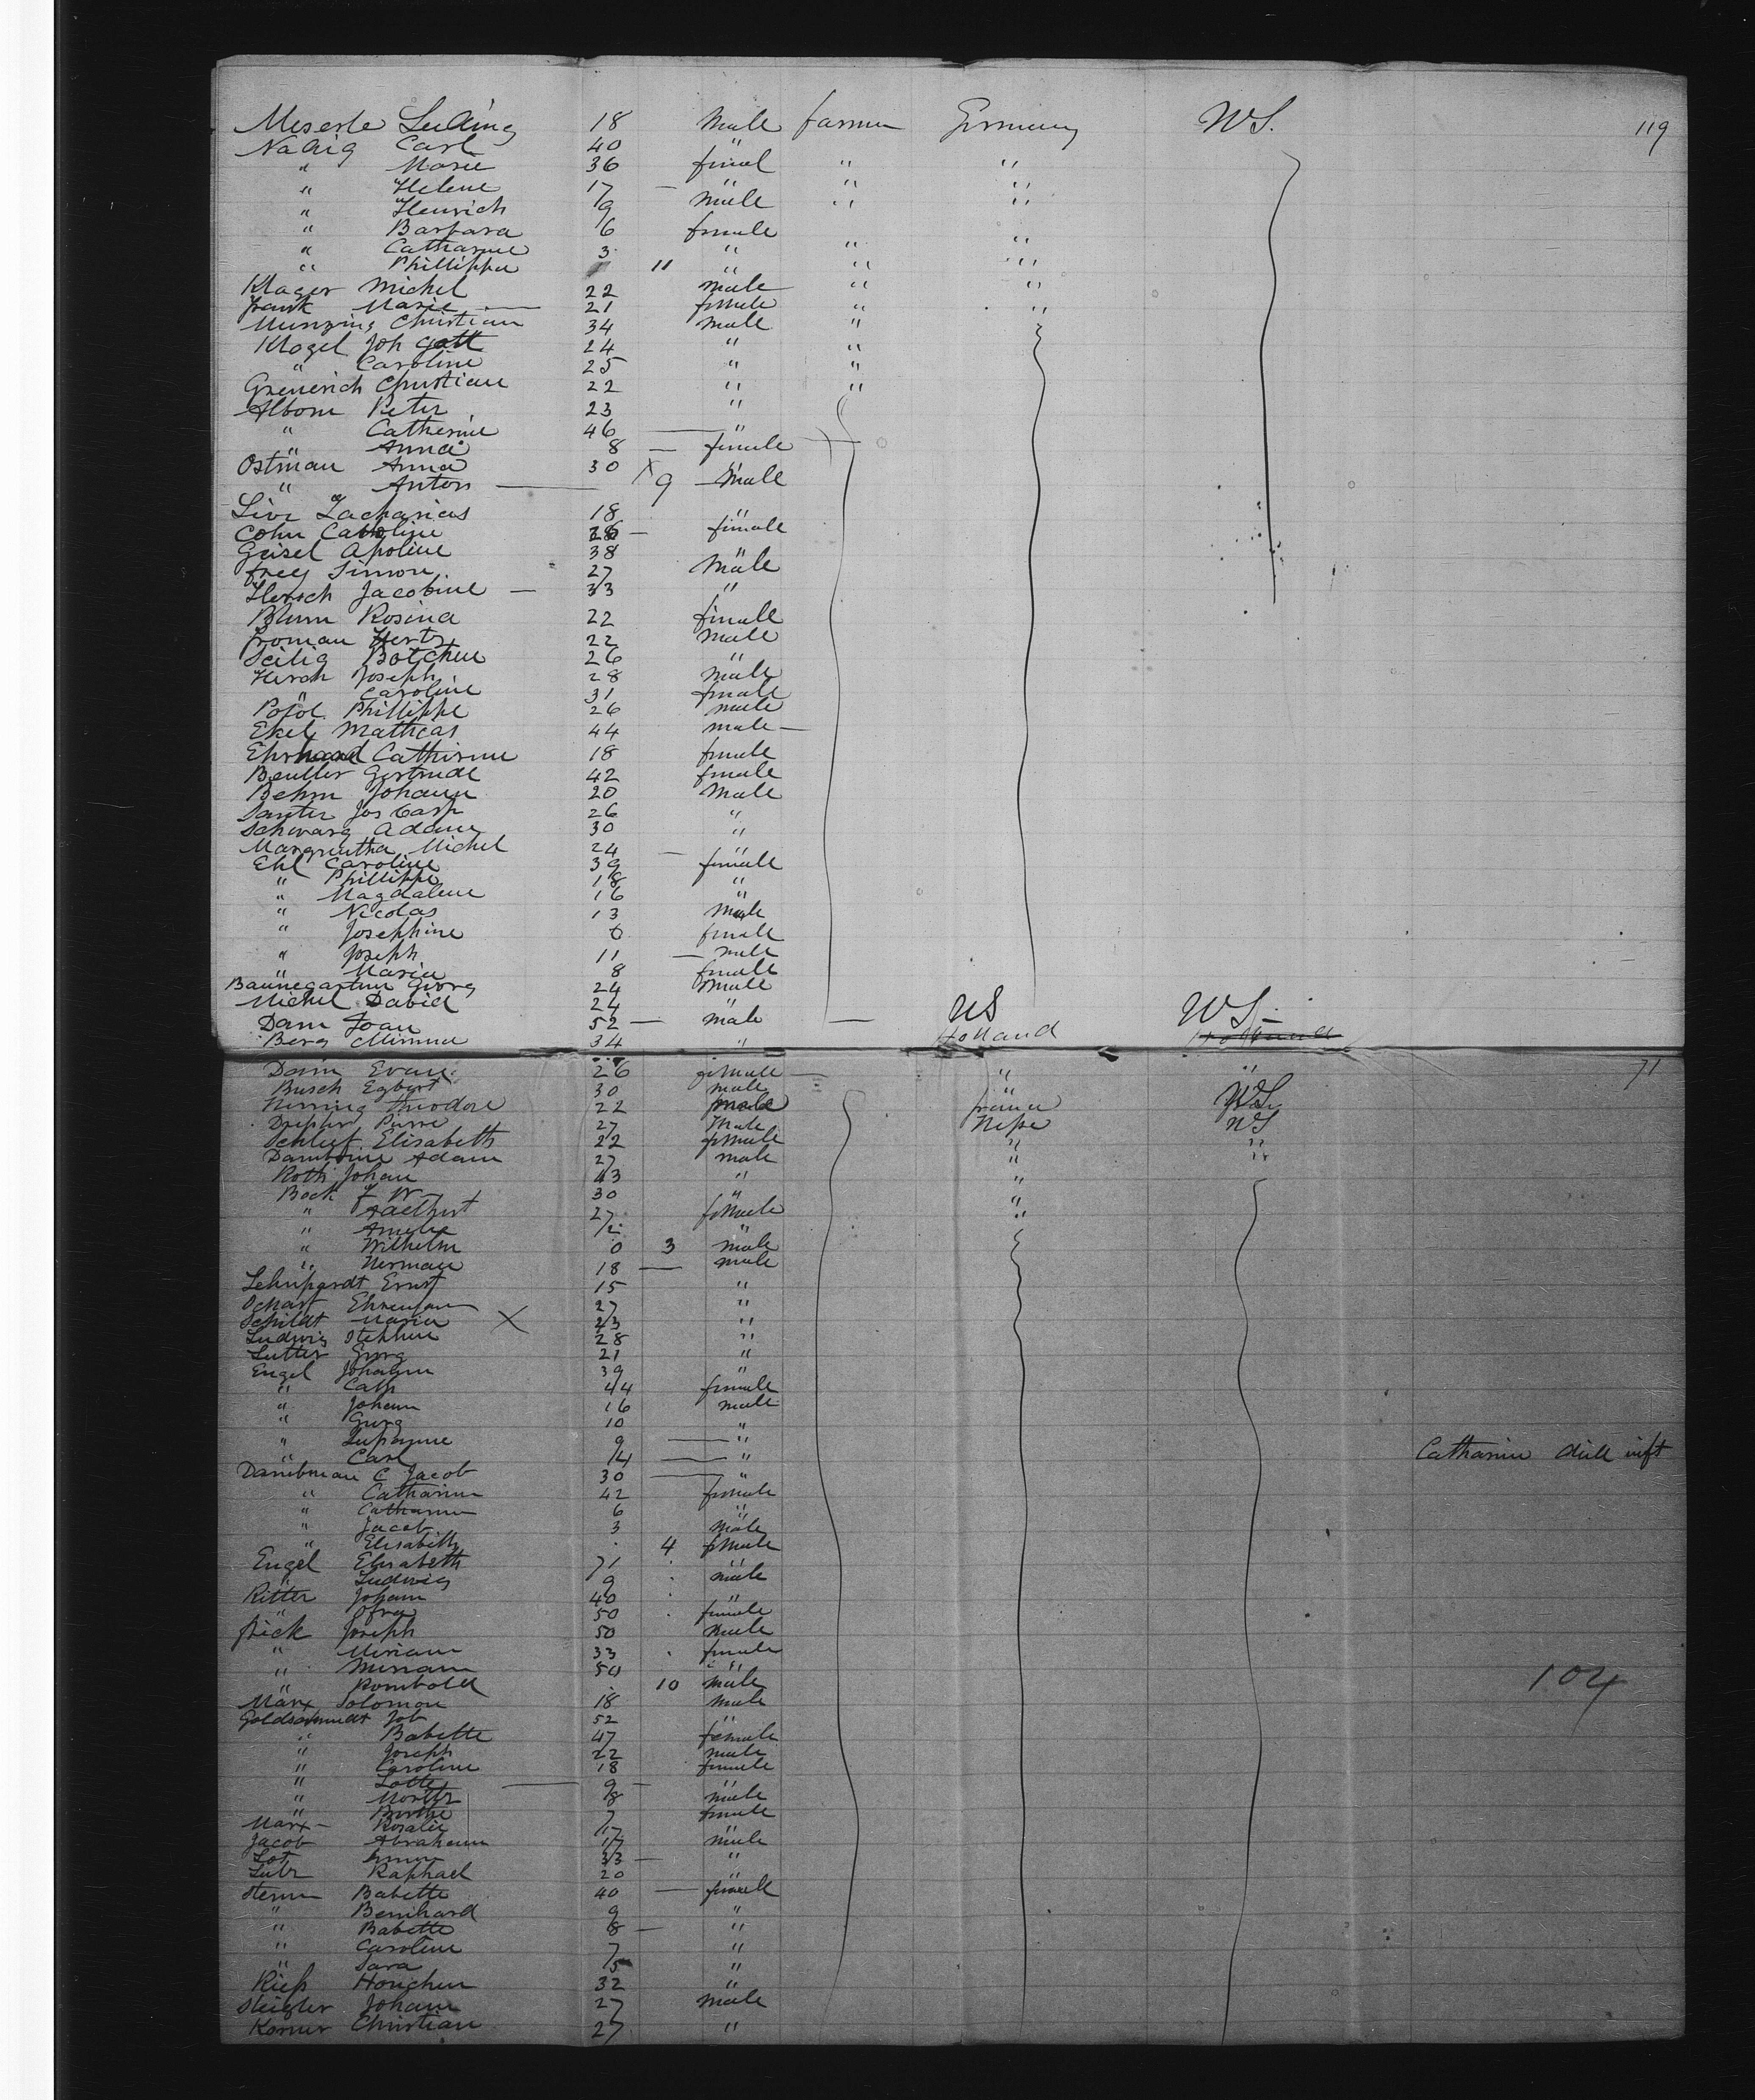 Meserle 18 Male farmer Germany US. 119
Nadig Carl 40
" Marie 36 fimal " "
" Helene 17 — " " "
" Heinrich 9 Male " "
" Barbara 6 female
" Catharine 3 " " "
" Phillippa 11 " " "
Klager Michel 22 male " "
frank Marie — 21 female " "
Munzing Christian 34 male "
Klagel Joh Gott 24 " "
" Caroline 25 " "
Christian 22 " "
Albom Peter 23 "
" Catherine 46 — "
" Anna 8 — female
Ostman Anna 30 X
" Anton — 9 Male
Livi Zacharias 18 "
Cohn Caroline 28 — female
Geisel Apoline 38 "
frey Simon 27 Male
Hersch Jacobine — 33 "
Blum Rosina 22 female
froman Hertz 22 Male
Seilig Botchen 26 "
Hersh Joseph 28 Male
" Caroline 31 female
Phillippe 26 male
Ekel Mathias 44 male —
Ehrhard Catherine 18 female
Beutler Gertrude 42 female
Behm Johann 20 Male
Santer Jos Casp 26 "
Schwarz Adam 30 "
Margreatha Michel 24 — "
Ehl Caroline 39 female
" Phillippe 18 "
" Magdalene 16 "
" Nicolas 13 Male
" Josephine 6 female
" Joseph 11 — male
" Maria 8 female
Baunegartner Georg 24 Male
Michel David 24 "
Dam Joan 52 — male — US US —
Berg Minna 34 " Holland
Dam 26 female — " " 71
Busch Egbert 30 male "
Theodore 22 male france US
Pierre 27 Male Hesse US
Elisabeth 22 female " "
Adam 27 male " "
Roth Johan 43 " "
Bock F W 30 " "
" 27 female "
" Amelie 2 "
" Wilhelm 0 3 male
" Herman 18 — male
Lehnhardt Ernst 15 "
27 "
Schildt Maria X 23 "
Ludwig Stephan 28 "
Lutter Georg 21 "
Engel Johann 39 "
" Cath 44 female
" Johann 16 male
" Georg 10 "
" 9 — "
" Carl 14 — " Catharine
Dambman C Jacob 30 — "
" Catharina 42 female
" Catharina 6 "
" Jacob 3 male
" Elisabeth 4 female
Engel Elisabeth 71 "
" Ludwig 9 male
Ritter Johann 40 "
" 50 female
frick Joseph 50 Male
" Miriam 33 female
" Miriam 50 "
" Rombold 10 male 104
Marx Solomon 18 male
Goldschmidt Job 52 "
" Babette 47 female
" Joseph 22 male
" Caroline 18 female
" Lotte — 9 — "
" Moritz 8 male
" Berthe 7 female
Marx — Rosalie 17 "
Jacob Abraham 17 male
Lot 33 — "
Lutz Raphael 20 "
Stern Babette 40 — female
" Bernhard 9 "
" Babette 8 — "
" Caroline 7 "
" Sara 5 "
Riess 32 "
Johann 27 Male
Korner Christian 27 "